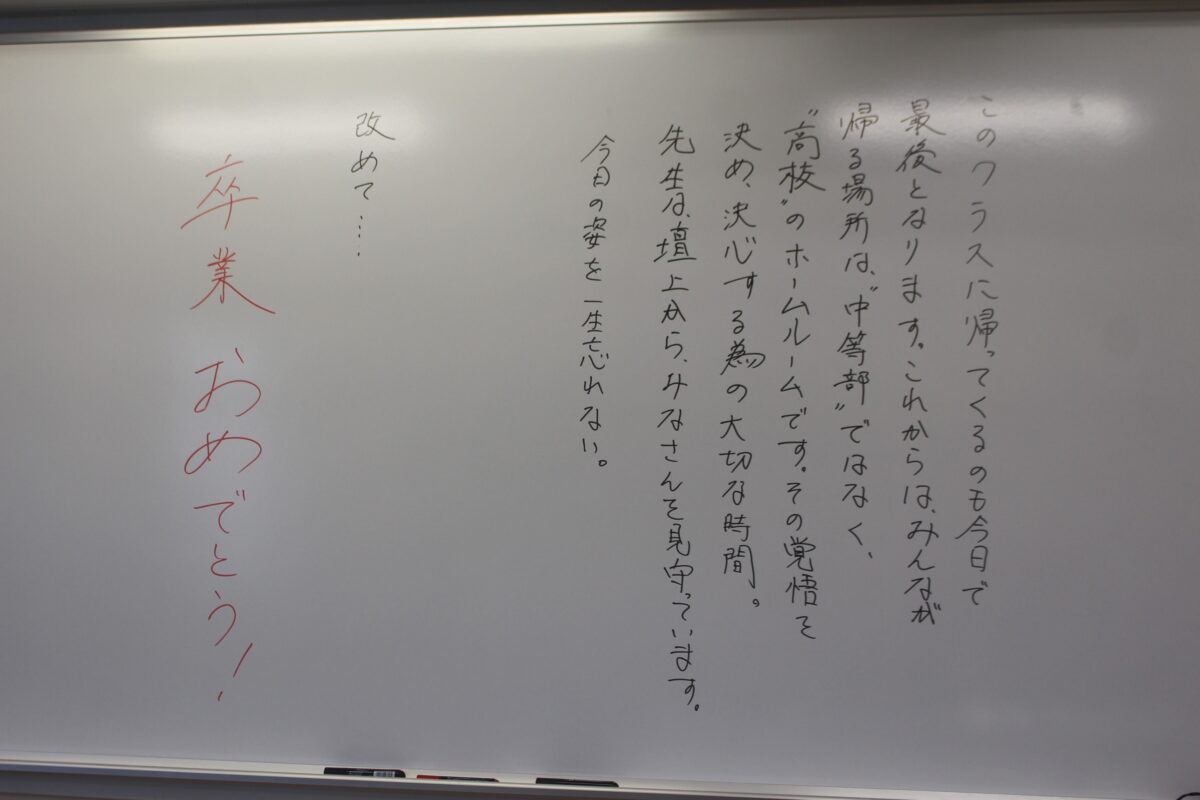 このクラスに帰ってくるのも今日で
最後となります。これからは、みんなが
帰る場所は、"中等部"ではなく、
"高校"のホームルームです。その覚悟を
決め、決心する為の大切な時間。
先生は、壇上から、みなさんを見守っています。
今日の姿を一生忘れない。
改めて……
卒業おめでとう!